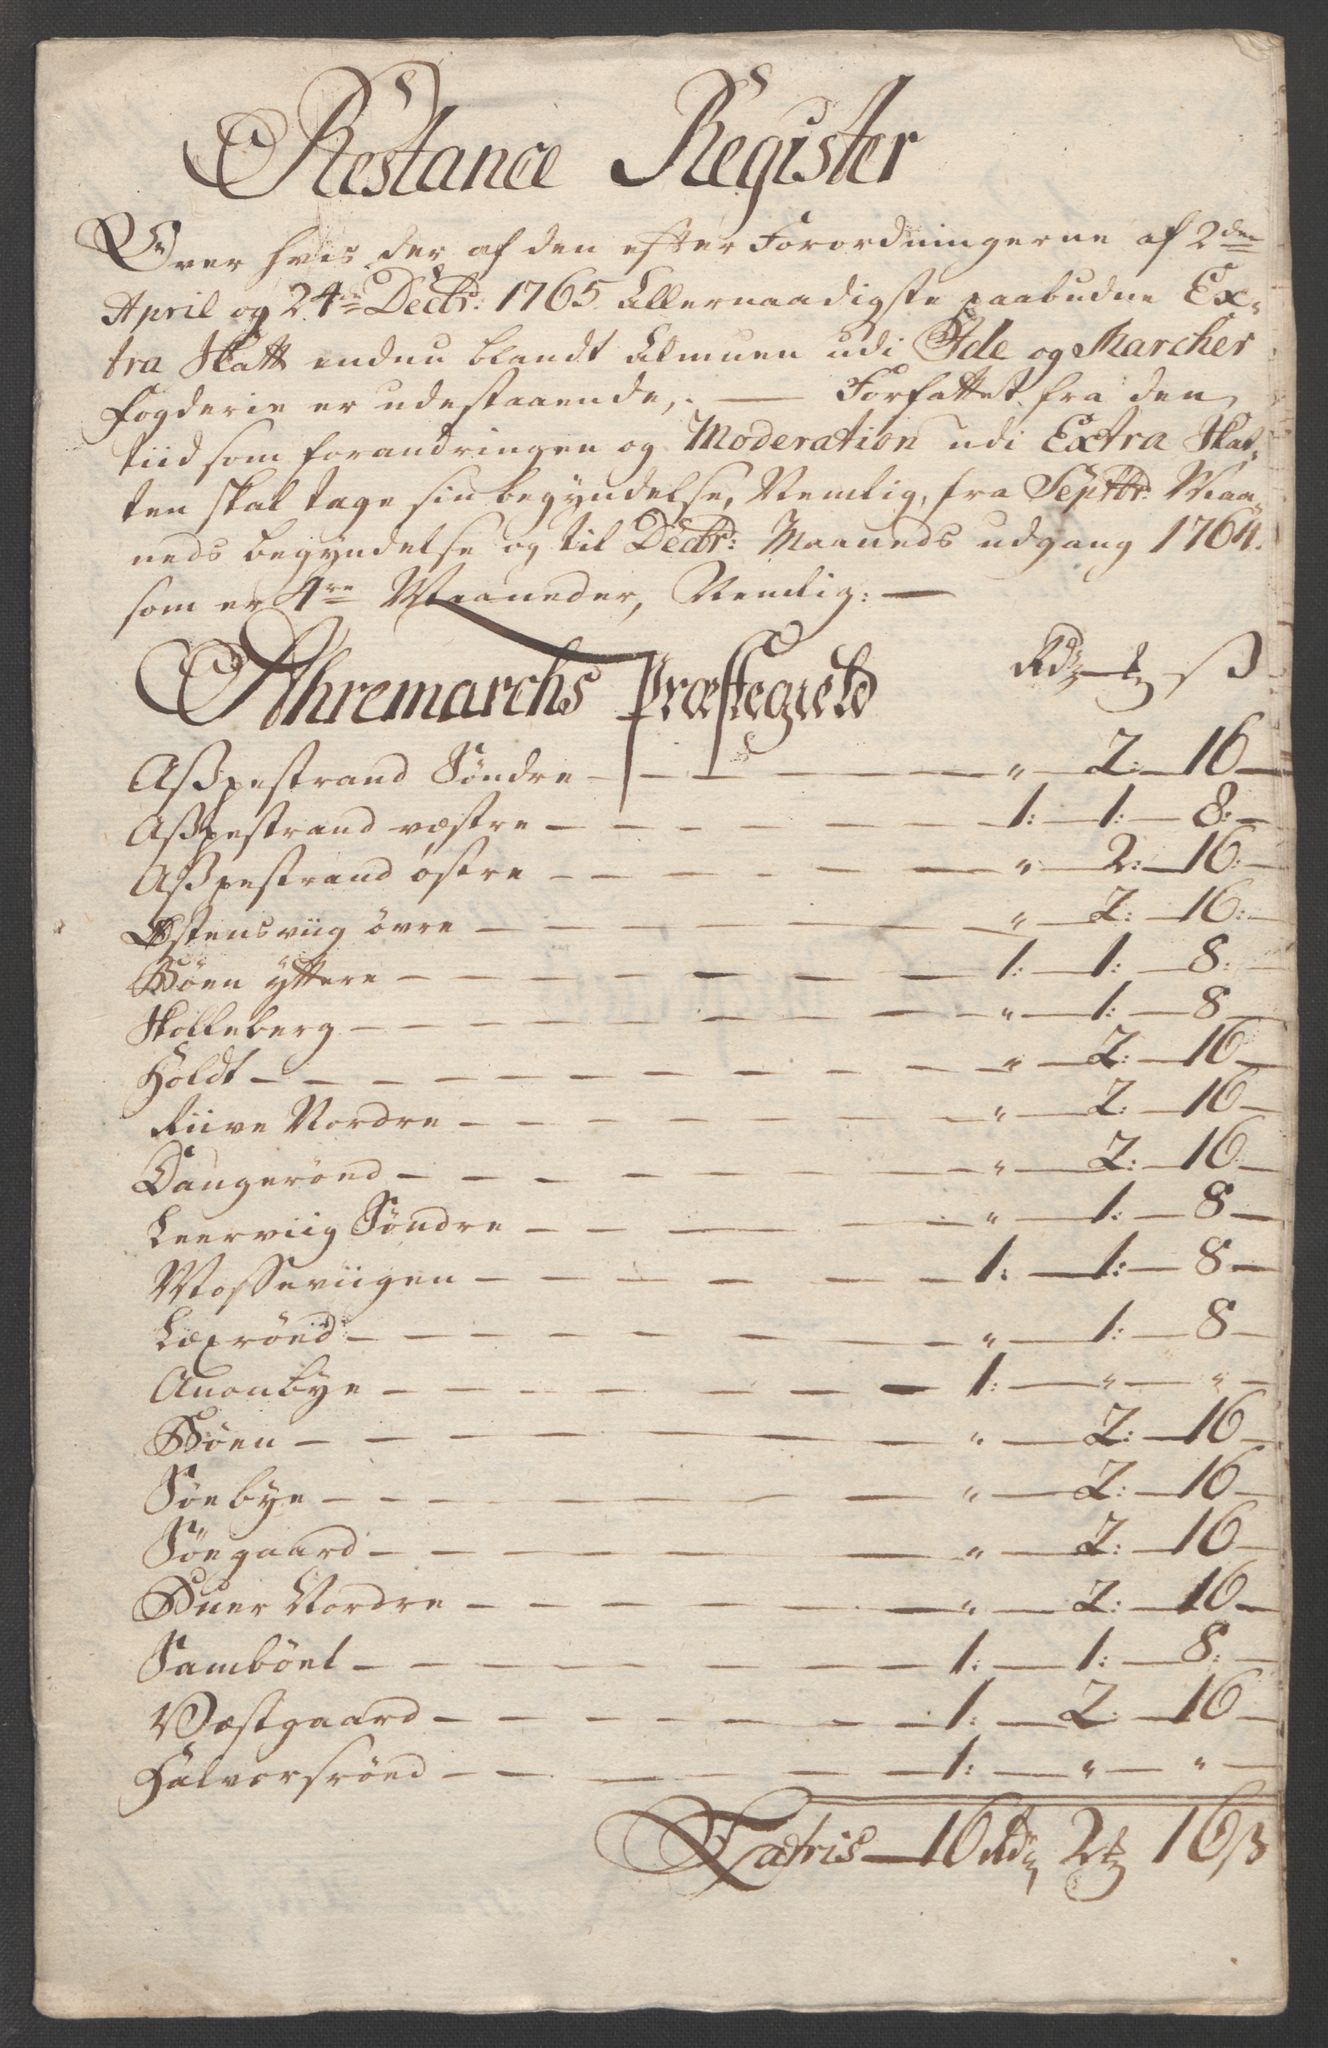 Restance Register
Over hvis der af den efter Forordningerne af 2den
April og 24de Decbr: 1765 Allernaadigste paabudne Ex-
tra Skatt endnu blandt Almuen udi Ide og Marcher
Fogderie er udestaaende, — Forfattet fra den
tiid som forandringen og Moderation udi Extra Skat-
ten skal tage sin begyndelse, Nemlig, fra Septbr: Maa-
neds begyndelse og til Decbr: Maaneds udgang 1764.
som er 4re Maaneder, Nemlig: —
Ahremarchs Præstegield Rdr ß
Aßpestrand Söndre — " 2: 16
Aßpestrand væstre — 1: 1: 8:
Aßpestrand östre — " 2: 16:
Østensviig övre — " 2: 16:
Böen ÿttere — 1: 1: 8:
Skolleberg — " 1: 8
Holdt — " 2: 16
Riive Nordre — " 2: 16
Daugerönd — " 2: 16
Leerviig Söndre — " 1: 8
Mosseviigen — 1: 1: 8
Læxrönd — " 1: 8
Anonbye — 1: " "
Böen — " 2: 16
Söebye — " 2: 16
Söegaard — " 2: 16
Buer Nordre — " 2: 16
Samböel — 1: 1: 8:
Væstgaard — 1: 2: 16
Halvorsröed — 1: " "
Latris — 16 Rdr 2 16 ß